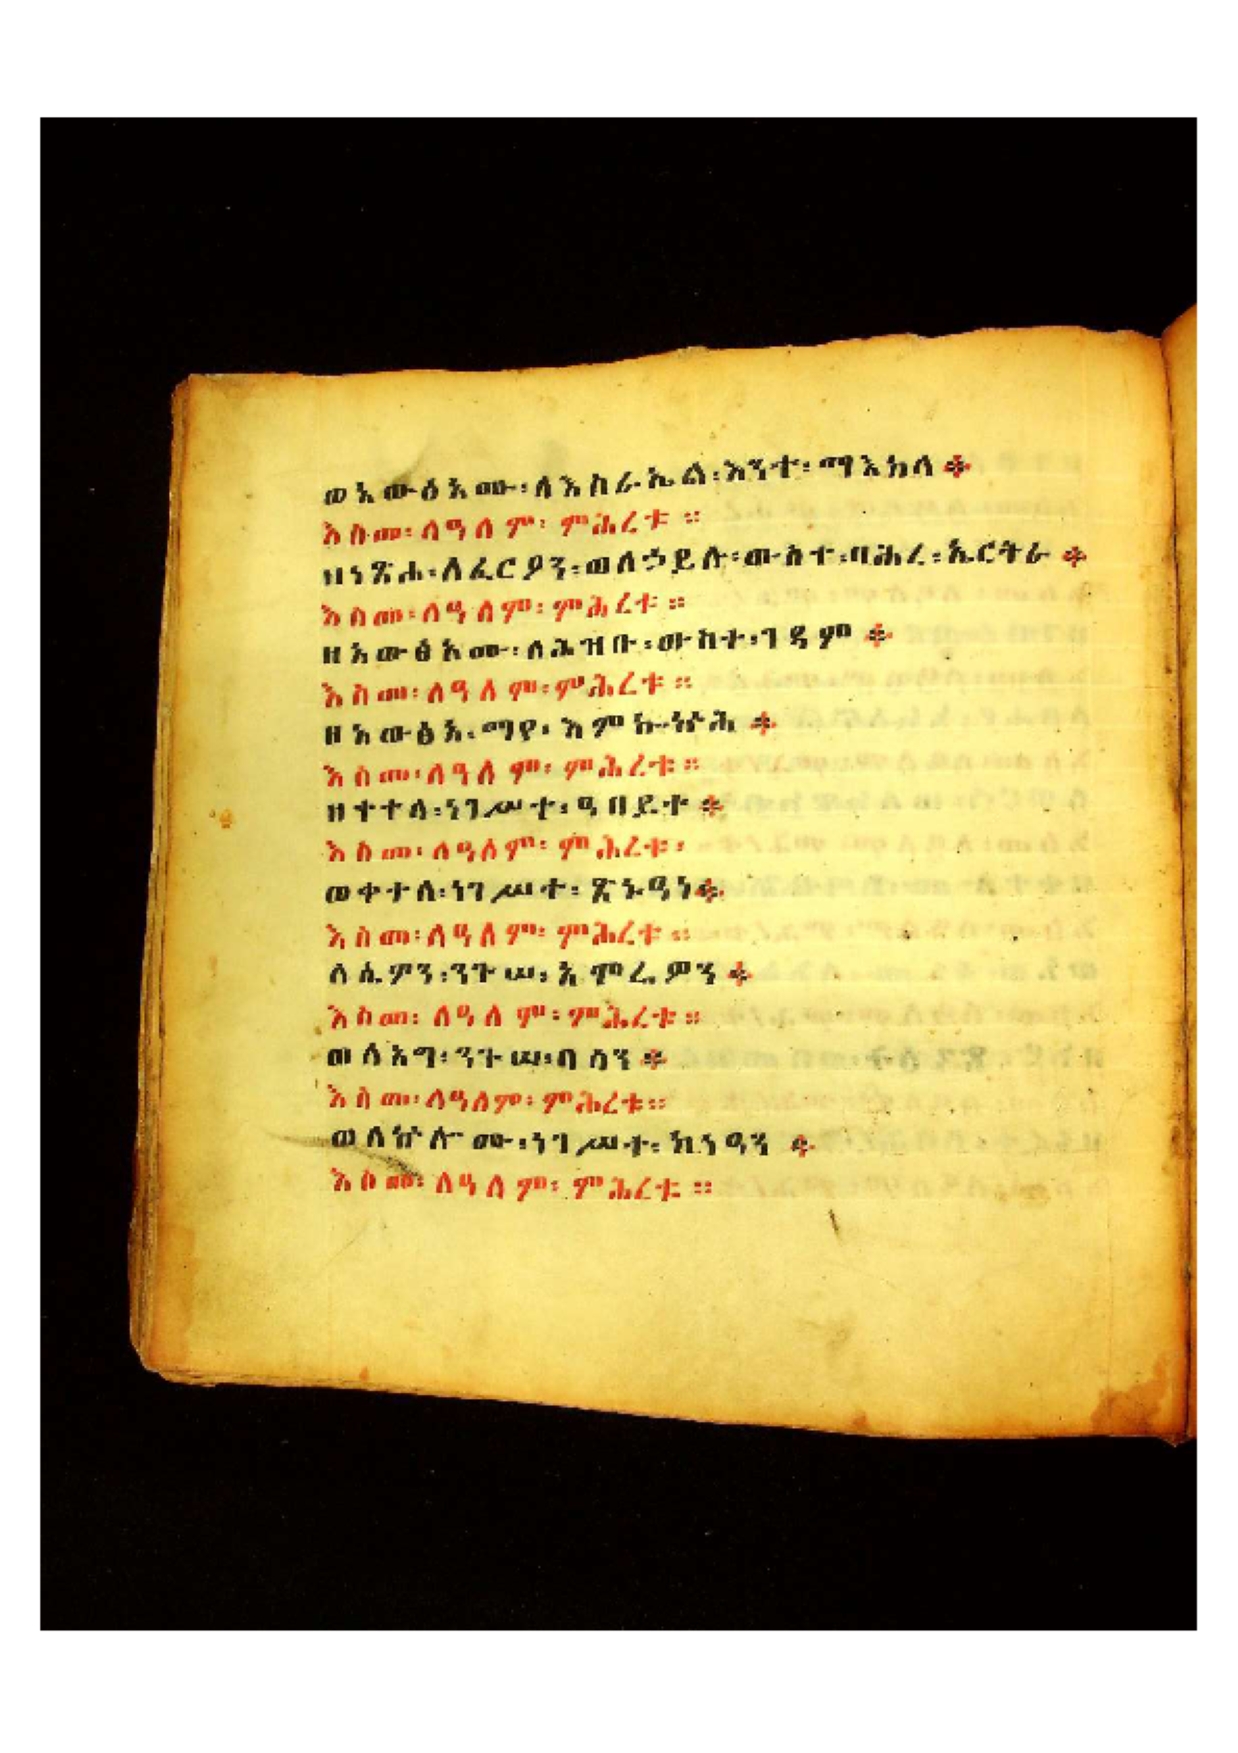 ወአውፅአሙ፡ለእስራኤል፡እንተ፡ማእከለ፨
እስመ፡ለዓለም፡ምሕረቱ።
ዘነጽሐ፡ለፈርዖን፡ወለኃይሉ፡ውስተ፡ባሕረ፡ኤርትራ፨
እስመ፡ለዓለም፡ምሕረቱ።
ዘአውፅአሙ፡ለሕዝቡ፡ውስተ፡ገዳም፨
እስመ፡ለዓለም፡ምሕረቱ።
ዘአውፅአ፡ማየ፡እምኰኵሕ፨
እስመ፡ለዓለም፡ምሕረቱ።
ዘቀተለ፡ነገሥተ፡ዓበይተ፨
እስመ፡ለዓለም፡ምሕረቱ፡
ወቀተለ፡ነገሥተ፡ጽኑዓነ፨
እስመ፡ለዓለም፡ምሕረቱ።
ለሴዎን፡ንጉሠ፡አሞሬዎን፨
እስመ፡ለዓለም፡ምሕረቱ።
ወለአግ፡ንጉሠ፡ባሳን፨
እስመ፡ለዓለም፡ምሕረቱ።
ወለኵሎሙ፡ነገሥተ፡ከነዓን፨
እስመ፡ለዓለም፡ምሕረቱ።